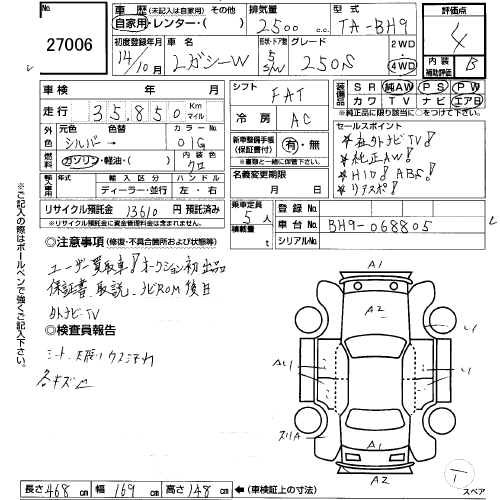 27006
車歴 (未記入は自家用) その他
自家用・レンター・( )
排気量 2500 c.c.
型式 TA-BH9
評価点 4
内装 B
補助評価
初度登録年月 14/10月
車名 レガシーW
形状・ドア数 5/W
グレード 250S
2WD・4WD
車検 年 月
シフト FAT
装備品
SR 純AW PS PW
カワ TV ナビ エアB
※純正品に限り該当に○をつけて下さい
走行 35,850 Km マイル
冷房 AC
外 元色 色替 カラーNo.
シルバー→ 01G
新車整備手帳(保証書付) 有・無
※書類と一緒に保管して下さい。
セールスポイント
★社外ナビTV!
★純正AW!
★HID! ABS!
★リアスポ!
燃料 ガソリン・軽油・( )
内装色 クロ
名義変更期限 月 日
輸入車用 輸入区分 ハンドル
ディーラー・並行 左・右
リサイクル預託金 13610 円 預託済み
※リサイクル預託金に資金管理料金は含まれておりません。
乗車定員 5人
積載量 t
登録No.
車台No. BH9-068805
シリアルNo.
※ご記入の際はボールペンで強くご記入下さい。
◎注意事項 (修復・不具合箇所および状態等)
ユーザー買取車! オークション初出品
保証書、取説、ナビROM後日
外ナビTV
◎検査員報告
シート 天張り ウスヨゴレ
各キズ凹
A1
A2
A1
A2
スリA
1
スペア
長さ 468 cm 幅 169 cm 高さ 148 cm ←(車検証上の寸法)